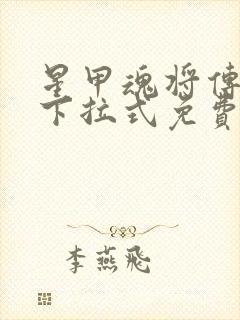 星甲魂将傳
下拉式免費
李燕飛